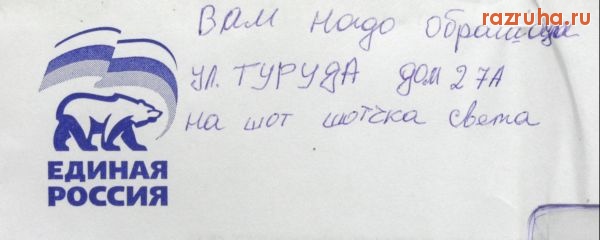 razruha.ru
Вам надо обратица
ул. ТУРУДА дом 27А
на шот шотчка света
ЕДИНАЯ
РОССИЯ